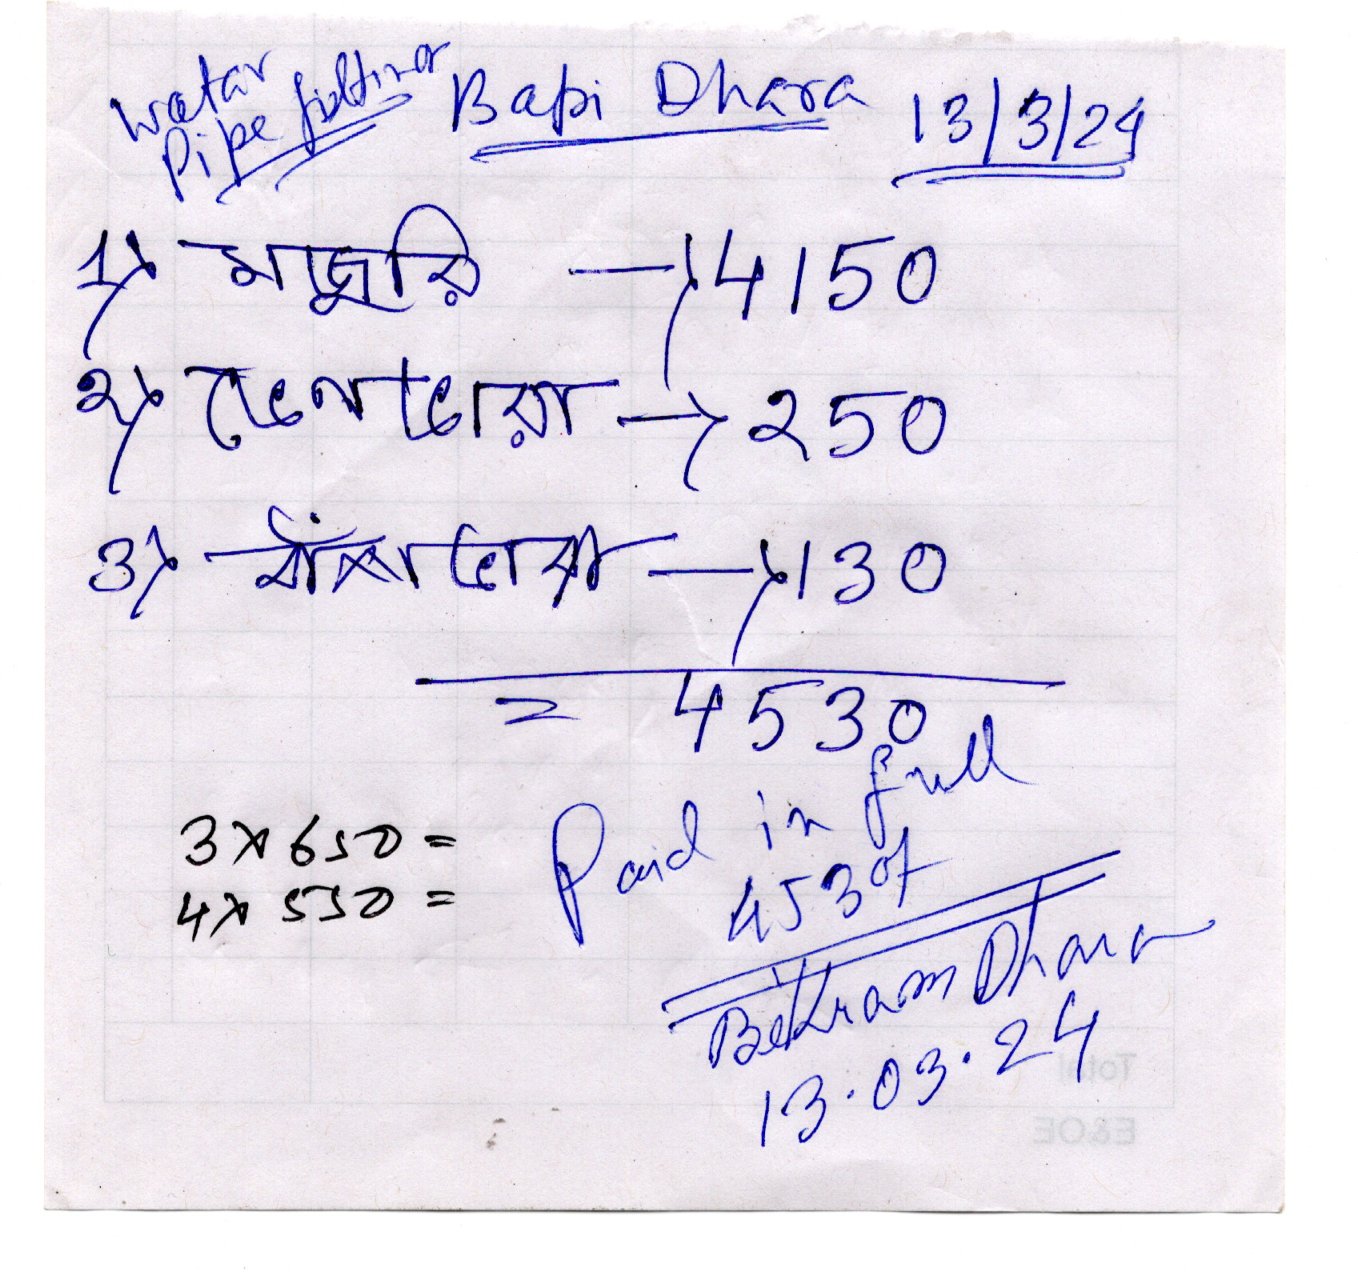 Watar
Pipe fittinor Bapi Dhara 13/3/24
1) মজুরি → 4150
2) ভেন ভারা → 250
3) → 130
= 4530
3 x 650 =
4 x 550 =
Paid in full
4530/-
Bekram Dhara
13.03.24
Total
E&OE